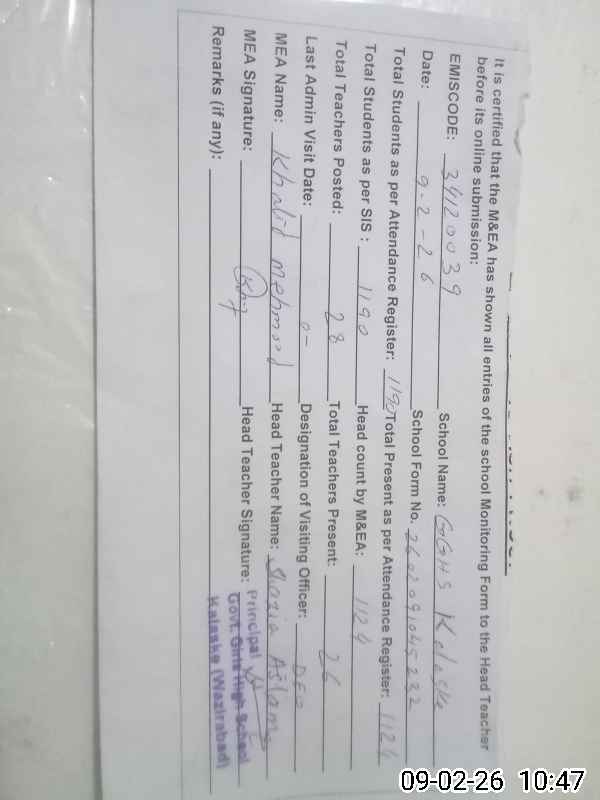 It is certified that the M&EA has shown all entries of the school Monitoring Form to the Head Teacher
before its online submission:
EMISCODE: 34120039 School Name: GGHS Kalaske
Date: 9-2-26 School Form No. 2602091045232
Total Students as per Attendance Register: 1190 Total Present as per Attendance Register: 1124
Total Students as per SIS : 1190 Head count by M&EA: 1124
Total Teachers Posted: 28 Total Teachers Present: 26
Last Admin Visit Date: 0- Designation of Visiting Officer: DEO
MEA Name: Khalid Mehmood Head Teacher Name: Shazia Aslam
MEA Signature: Head Teacher Signature:
Principal
Govt. Girls High School
Kalaske (Wazirabad)
Remarks (if any):
09-02-26 10:47